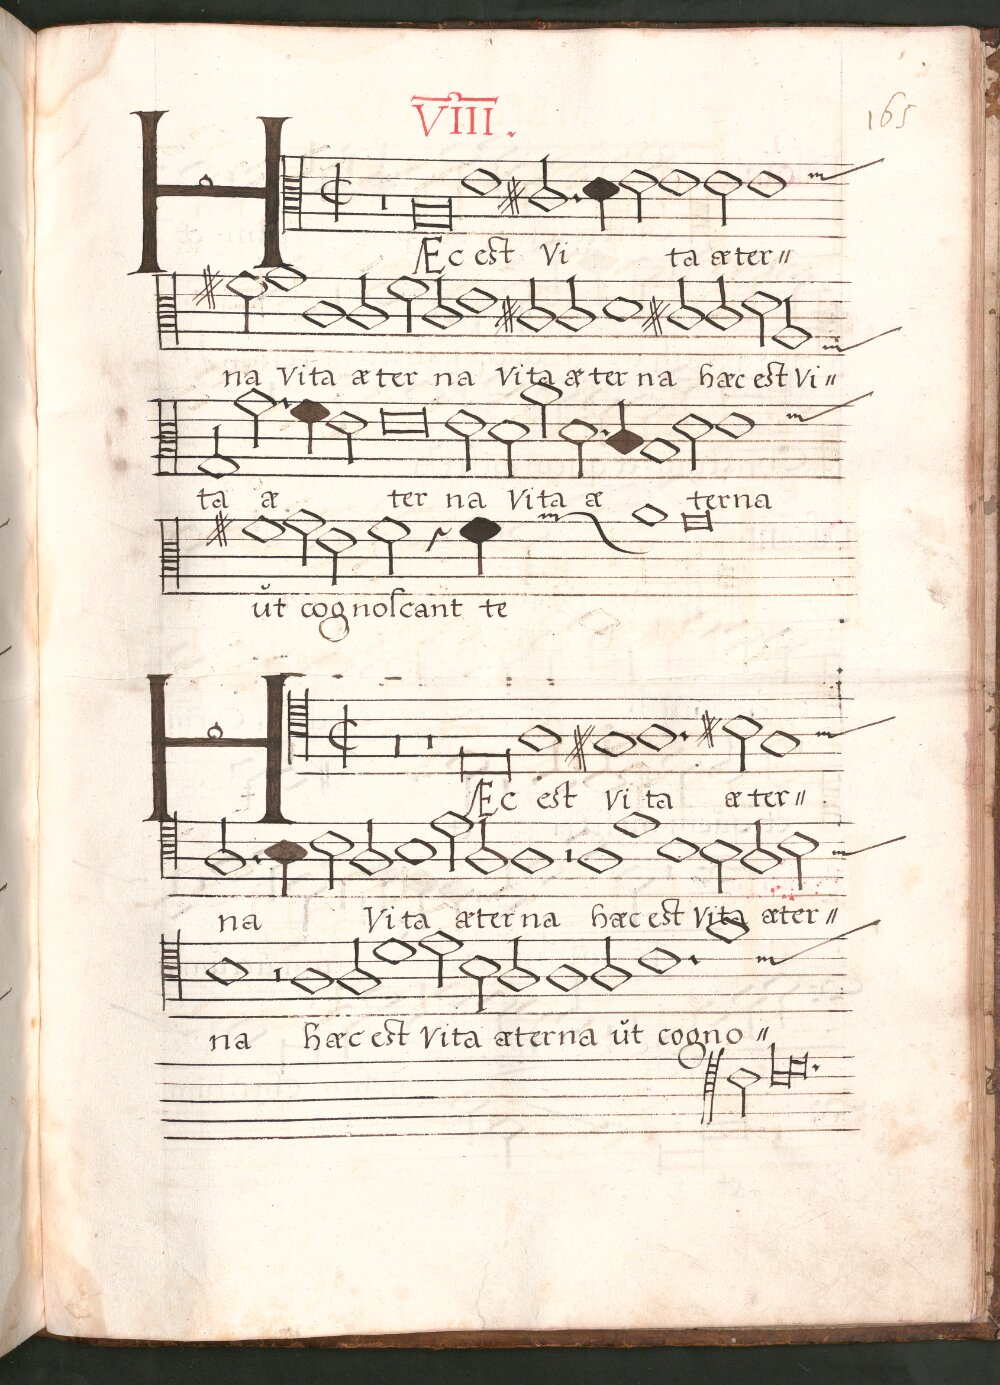 VIII.
165
HÆc est Vi ta æter〃
na Vita æter na Vita æter na hæc est Vi〃
ta æ ter na Vita æ terna
ut cognoſcant te
HÆc est Vi ta æter〃
na Vi ta æter na hæc est Vita æter〃
na hæc est Vita æterna ut cogno〃